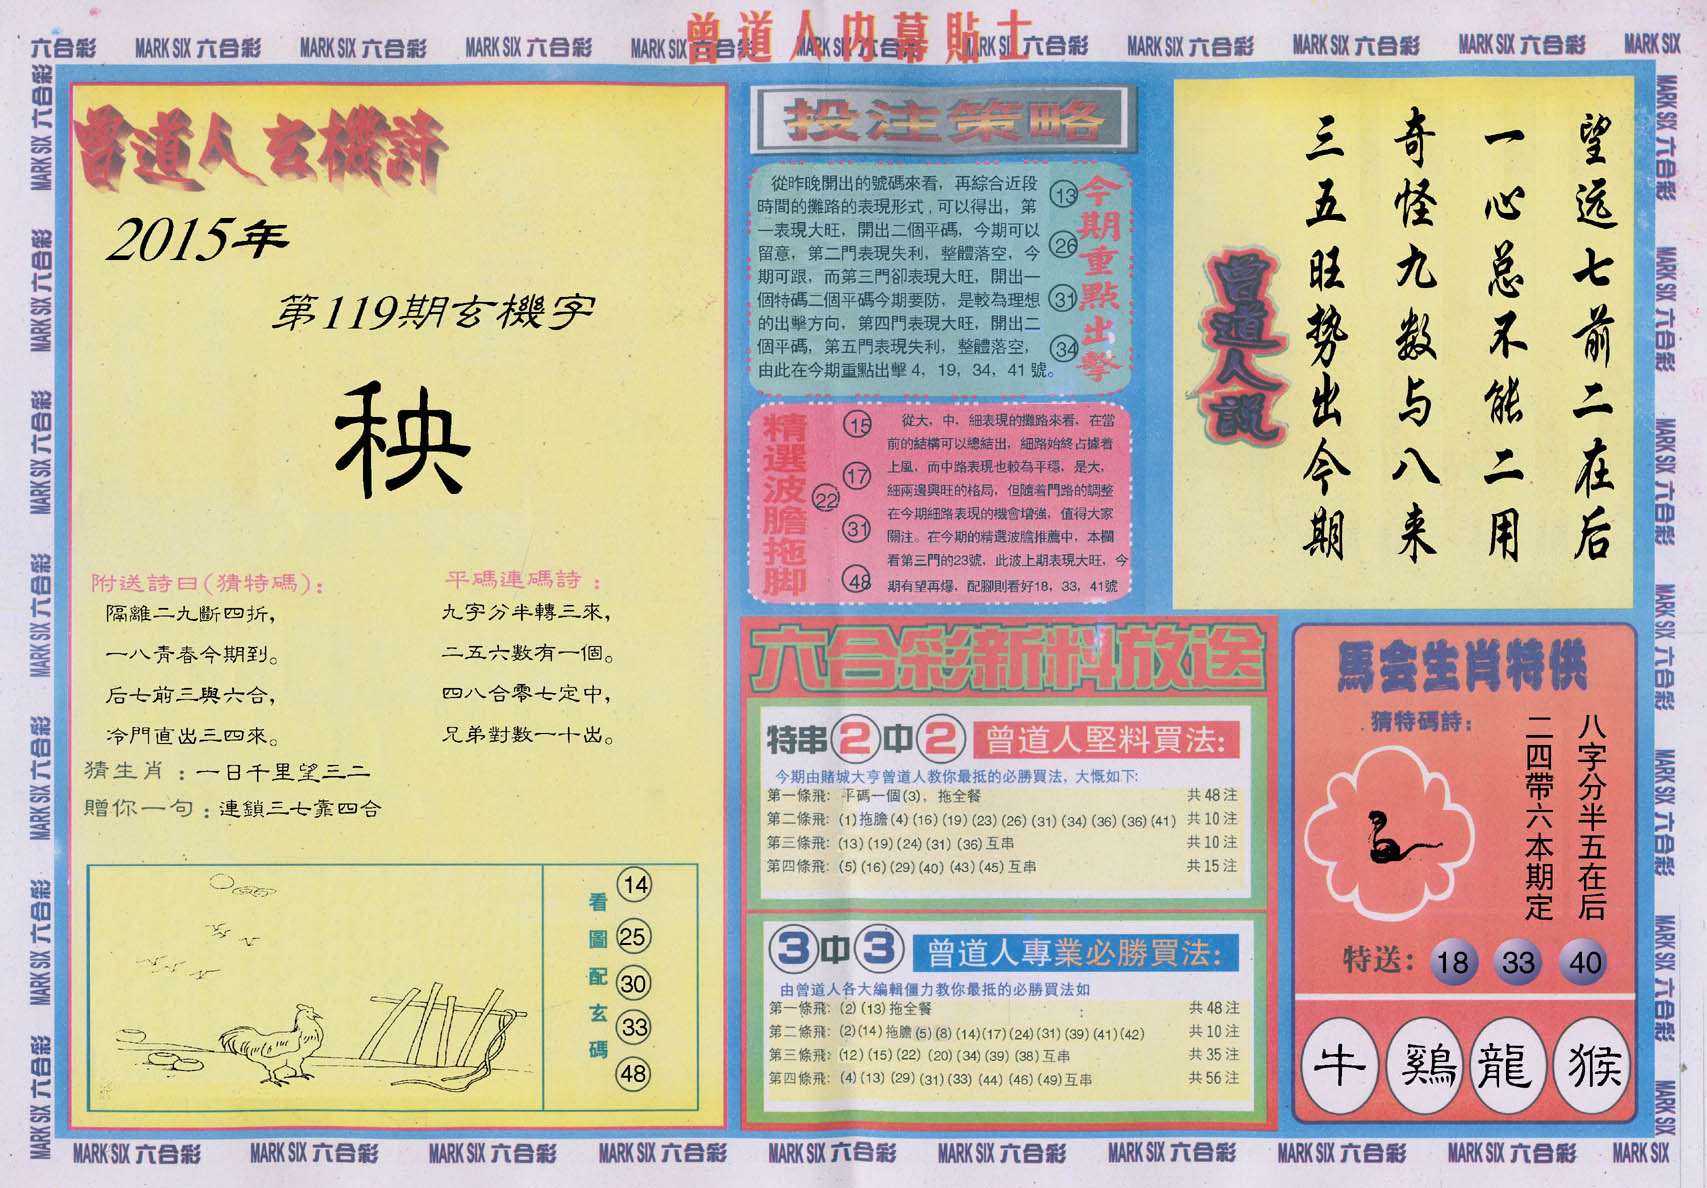 曾道人内幕貼士
六合彩 MARK SIX 六合彩 MARK SIX 六合彩 MARK SIX 六合彩 MARK SIX 六合彩 MARK SIX 六合彩 MARK SIX 六合彩 MARK SIX 六合彩 MARK SIX 六合彩 MARK SIX 六合彩 MARK SIX
曾道人玄機詩
2015年
第119期玄機字
秧
附送詩曰(猜特碼):
隔離二九斷四折,
一八青春今期到。
后七前三與六合,
冷門直出三四來。
平碼連碼詩:
九字分半轉三來,
二五六數有一個。
四八合零七定中,
兄弟對數一十出。
猜生肖:一日千里望三二
贈你一句:連鎖三七靠四合
看圖配玄碼
14
25
30
33
48
投注策略
從昨晚開出的號碼來看,再綜合近段
時間的攤路的表現形式,可以得出,第
一表現大旺,開出二個平碼,今期可以
留意,第二門表現失利,整體落空,今
期可跟,而第三門卻表現大旺,開出一
個特碼二個平碼今期要防,是較為理想
的出擊方向,第四門表現大旺,開出二
個平碼,第五門表現失利,整體落空,
由此在今期重點出擊4,19,34,41號。
13
26
31
34
今期重點出擊
精選波膽拖脚
15
17
22
31
48
從大,中,細表現的攤路來看,在當
前的結構可以總結出,細路始終占據着
上風,而中路表現也較為平穩,是大,
細兩邊興旺的格局,但隨着門路的調整
在今期細路表現的機會增強,值得大家
關注。在今期的精選波膽推薦中,本欄
看第三門的23號,此波上期表現大旺,今
期有望再爆,配腳則看好18,33,41號
六合彩新料放送
特串2中2 曾道人堅料買法:
今期由賭城大亨曾道人教你最抵的必勝買法,大慨如下:
第一條飛: 平碼一個(3),拖全餐 共48注
第二條飛: (1)拖膽(4)(16)(19)(23)(26)(31)(34)(36)(36)(41) 共10注
第三條飛: (13)(19)(24)(31)(36)互串 共10注
第四條飛: (5)(16)(29)(40)(43)(45)互串 共15注
3中3 曾道人專業必勝買法:
由曾道人各大編輯僵力教你最抵的必勝買法如
第一條飛: (2)(13)拖全餐 共48注
第二條飛: (2)(14)拖膽(5)(8)(14)(17)(24)(31)(39)(41)(42) 共10注
第三條飛: (12)(15)(22)(20)(34)(39)(38)互串 共35注
第四條飛: (4)(13)(29)(31)(33)(44)(46)(49)互串 共56注
望远七前二在后
一心总不能二用
奇怪九数与八来
三五旺势出今期
曾道人説
馬会生肖特供
猜特碼詩:
八字分半五在后
二四帶六本期定
特送: 18 33 40
牛 鷄 龍 猴
MARK SIX 六合彩 MARK SIX 六合彩 MARK SIX 六合彩 MARK SIX 六合彩 MARK SIX 六合彩 MARK SIX 六合彩 MARK SIX 六合彩
MARK SIX 六合彩 MARK SIX 六合彩 MARK SIX 六合彩 MARK SIX 六合彩 MARK SIX 六合彩 MARK SIX 六合彩 MARK SIX
MARK SIX 六合彩 MARK SIX 六合彩 MARK SIX 六合彩 MARK SIX 六合彩 MARK SIX 六合彩 MARK SIX 六合彩 MARK SIX 六合彩 MARK SIX 六合彩 MARK SIX 六合彩 MARK SIX